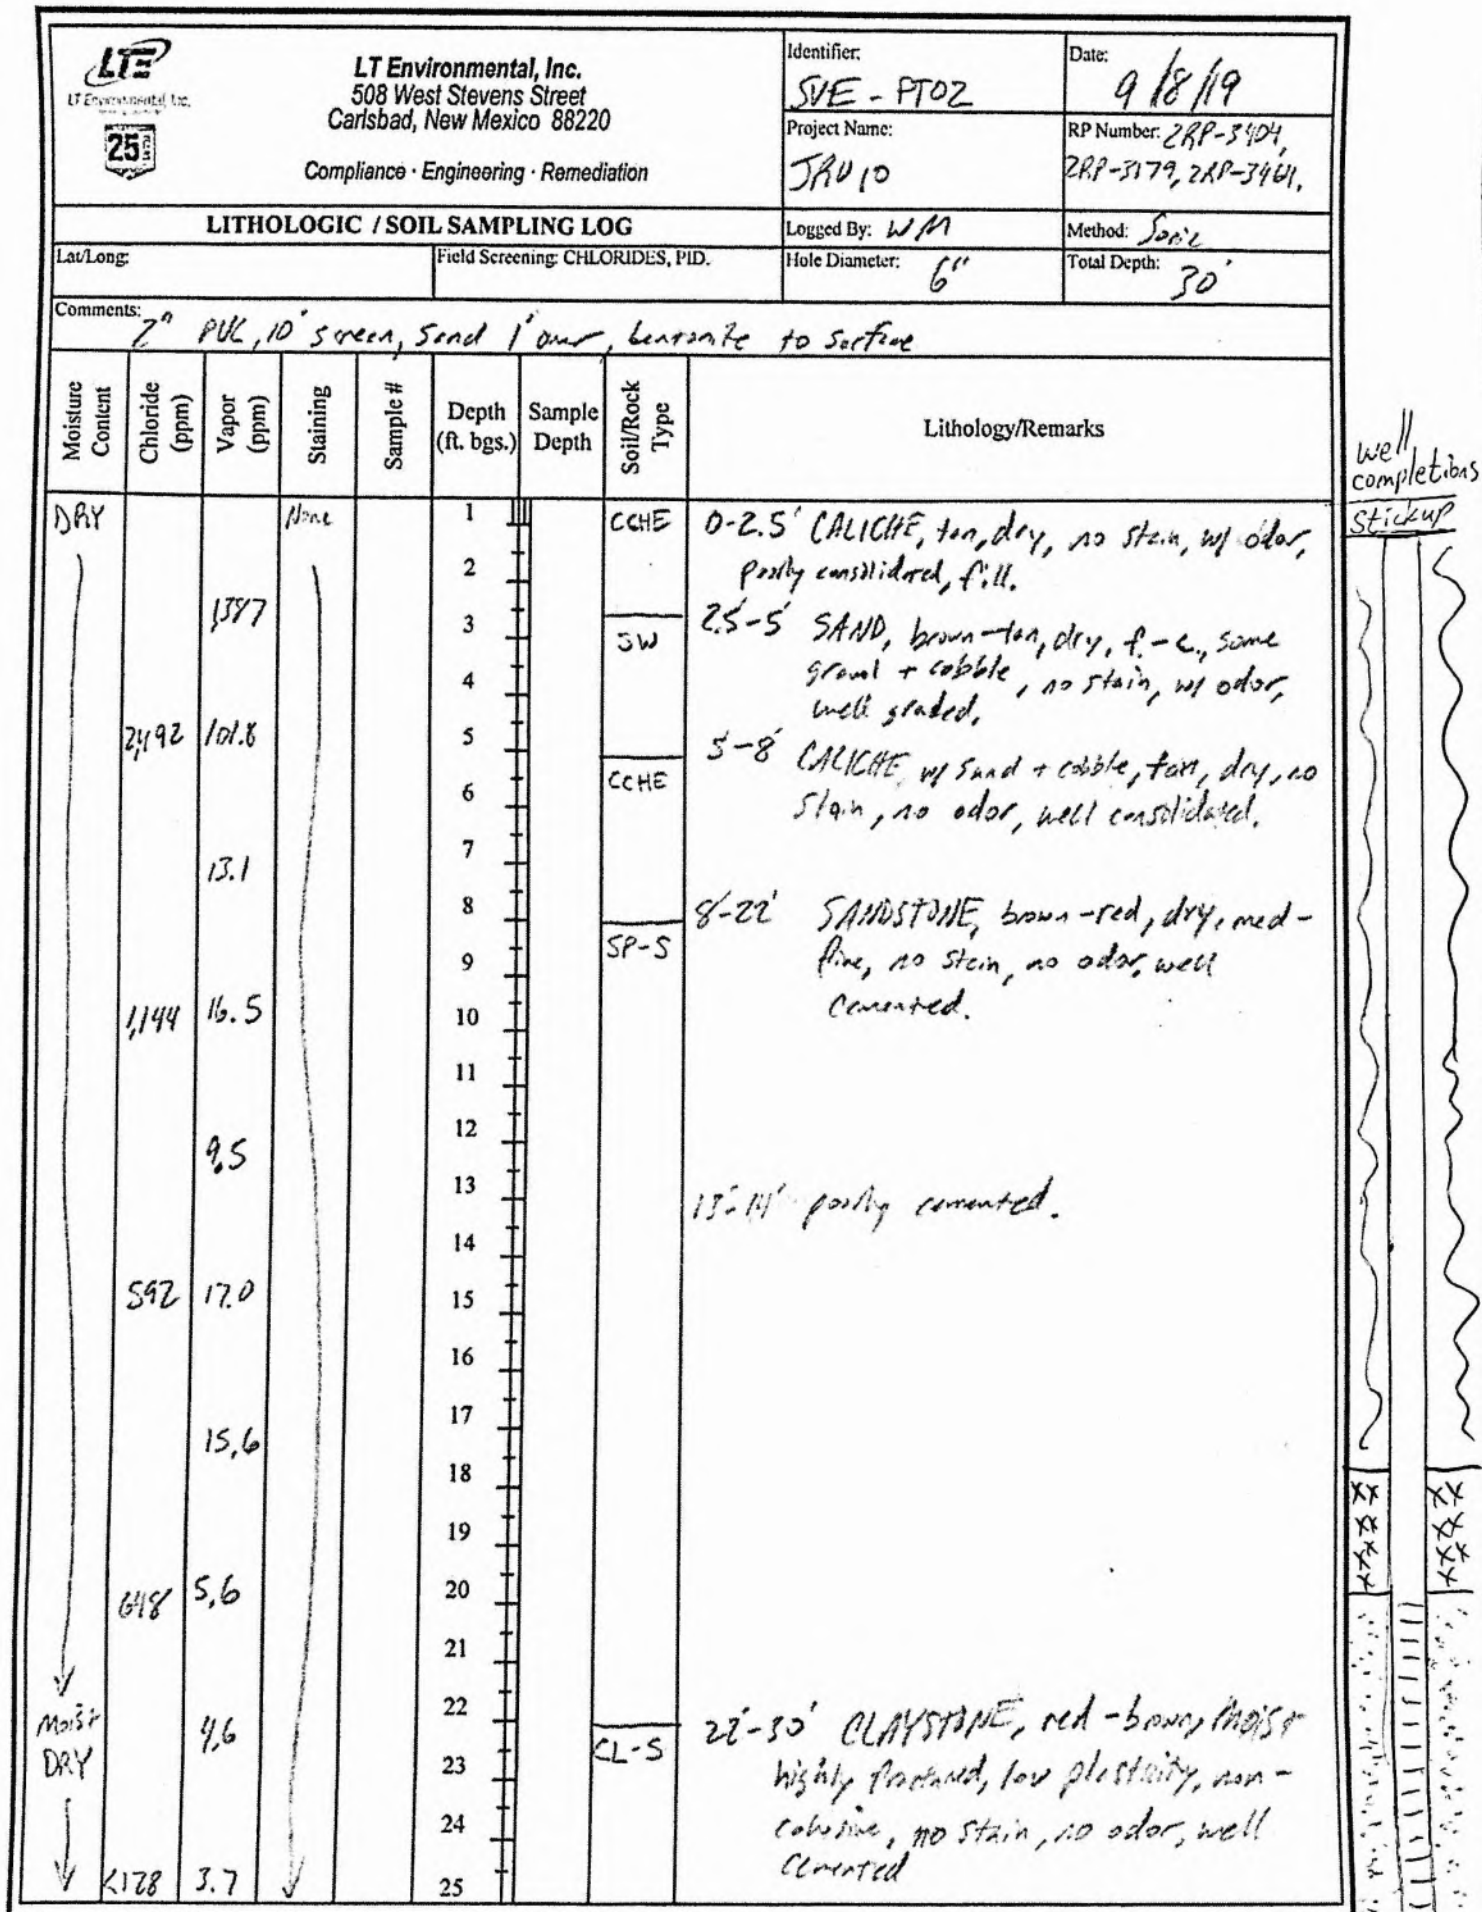 LTE
LT Environmental, Inc.
25
LT Environmental, Inc.
508 West Stevens Street
Carlsbad, New Mexico 88220
Compliance · Engineering · Remediation
Identifier:
SVE - PT02
Date:
9/8/19
Project Name:
JRU 10
RP Number: 2RP-3404,
2RP-3179, 2RP-3461.
LITHOLOGIC / SOIL SAMPLING LOG
Logged By: WM
Method: Sonic
Lat/Long:
Field Screening: CHLORIDES, PID.
Hole Diameter: 6"
Total Depth: 30'
Comments:
2" PVC, 10' screen, sand 1' over, bentonite to surface
Moisture Content
Chloride (ppm)
Vapor (ppm)
Staining
Sample #
Depth (ft. bgs.)
Sample Depth
Soil/Rock Type
Lithology/Remarks
well completions
Stickup
DRY None 1 CCHE 0-2.5' CALICHE, tan, dry, no stain, w/ odor,
2 poorly consolidated, fill.
1,387 3 SW 2.5-5' SAND, brown-tan, dry, f.-c., some
4 gravel + cobble, no stain, w/ odor,
well graded,
2,492 101.8 5
5-8' CALICHE w/ sand + cobble, tan, dry, no
6 CCHE stain, no odor, well consolidated.
13.1 7
8 8'-22' SANDSTONE, brown-red, dry, med-
9 SP-S fine, no stain, no odor, well
cemented.
1,144 16.5 10
11
12
9.5
13 13'-14' poorly cemented.
14
592 17.0 15
16
17
15.6
18
19
648 5.6 20
21
22 22'-30' CLAYSTONE, red-brown, moist
Moist 4.6 CL-S
DRY 23 highly fractured, low plasticity, non-
24 cohesive, no stain, no odor, well
cemented
<128 3.7 25